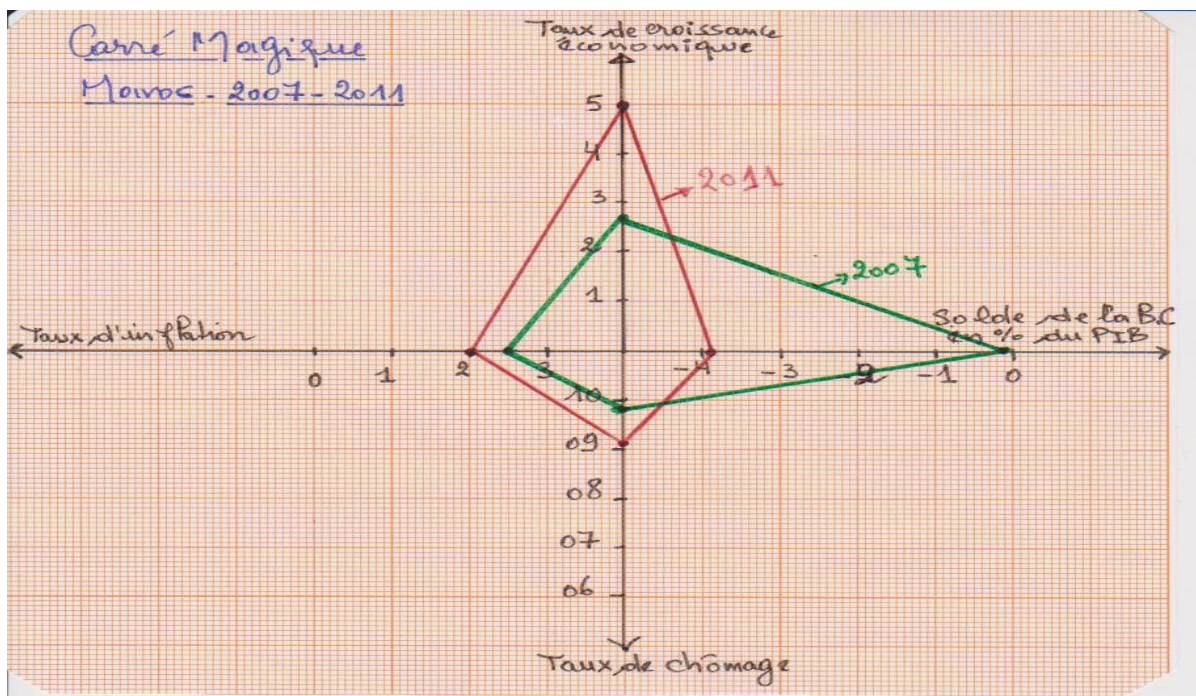 Carré Magique
Maroc - 2007-2011
Taux de croissance
économique
5
4
3
2011
2
2007
1
Taux d'inflation
Solde de la B.C
en % du PIB
0 1 2 3 -4 -3 -2 -1 0
10
09
08
07
06
Taux de chômage